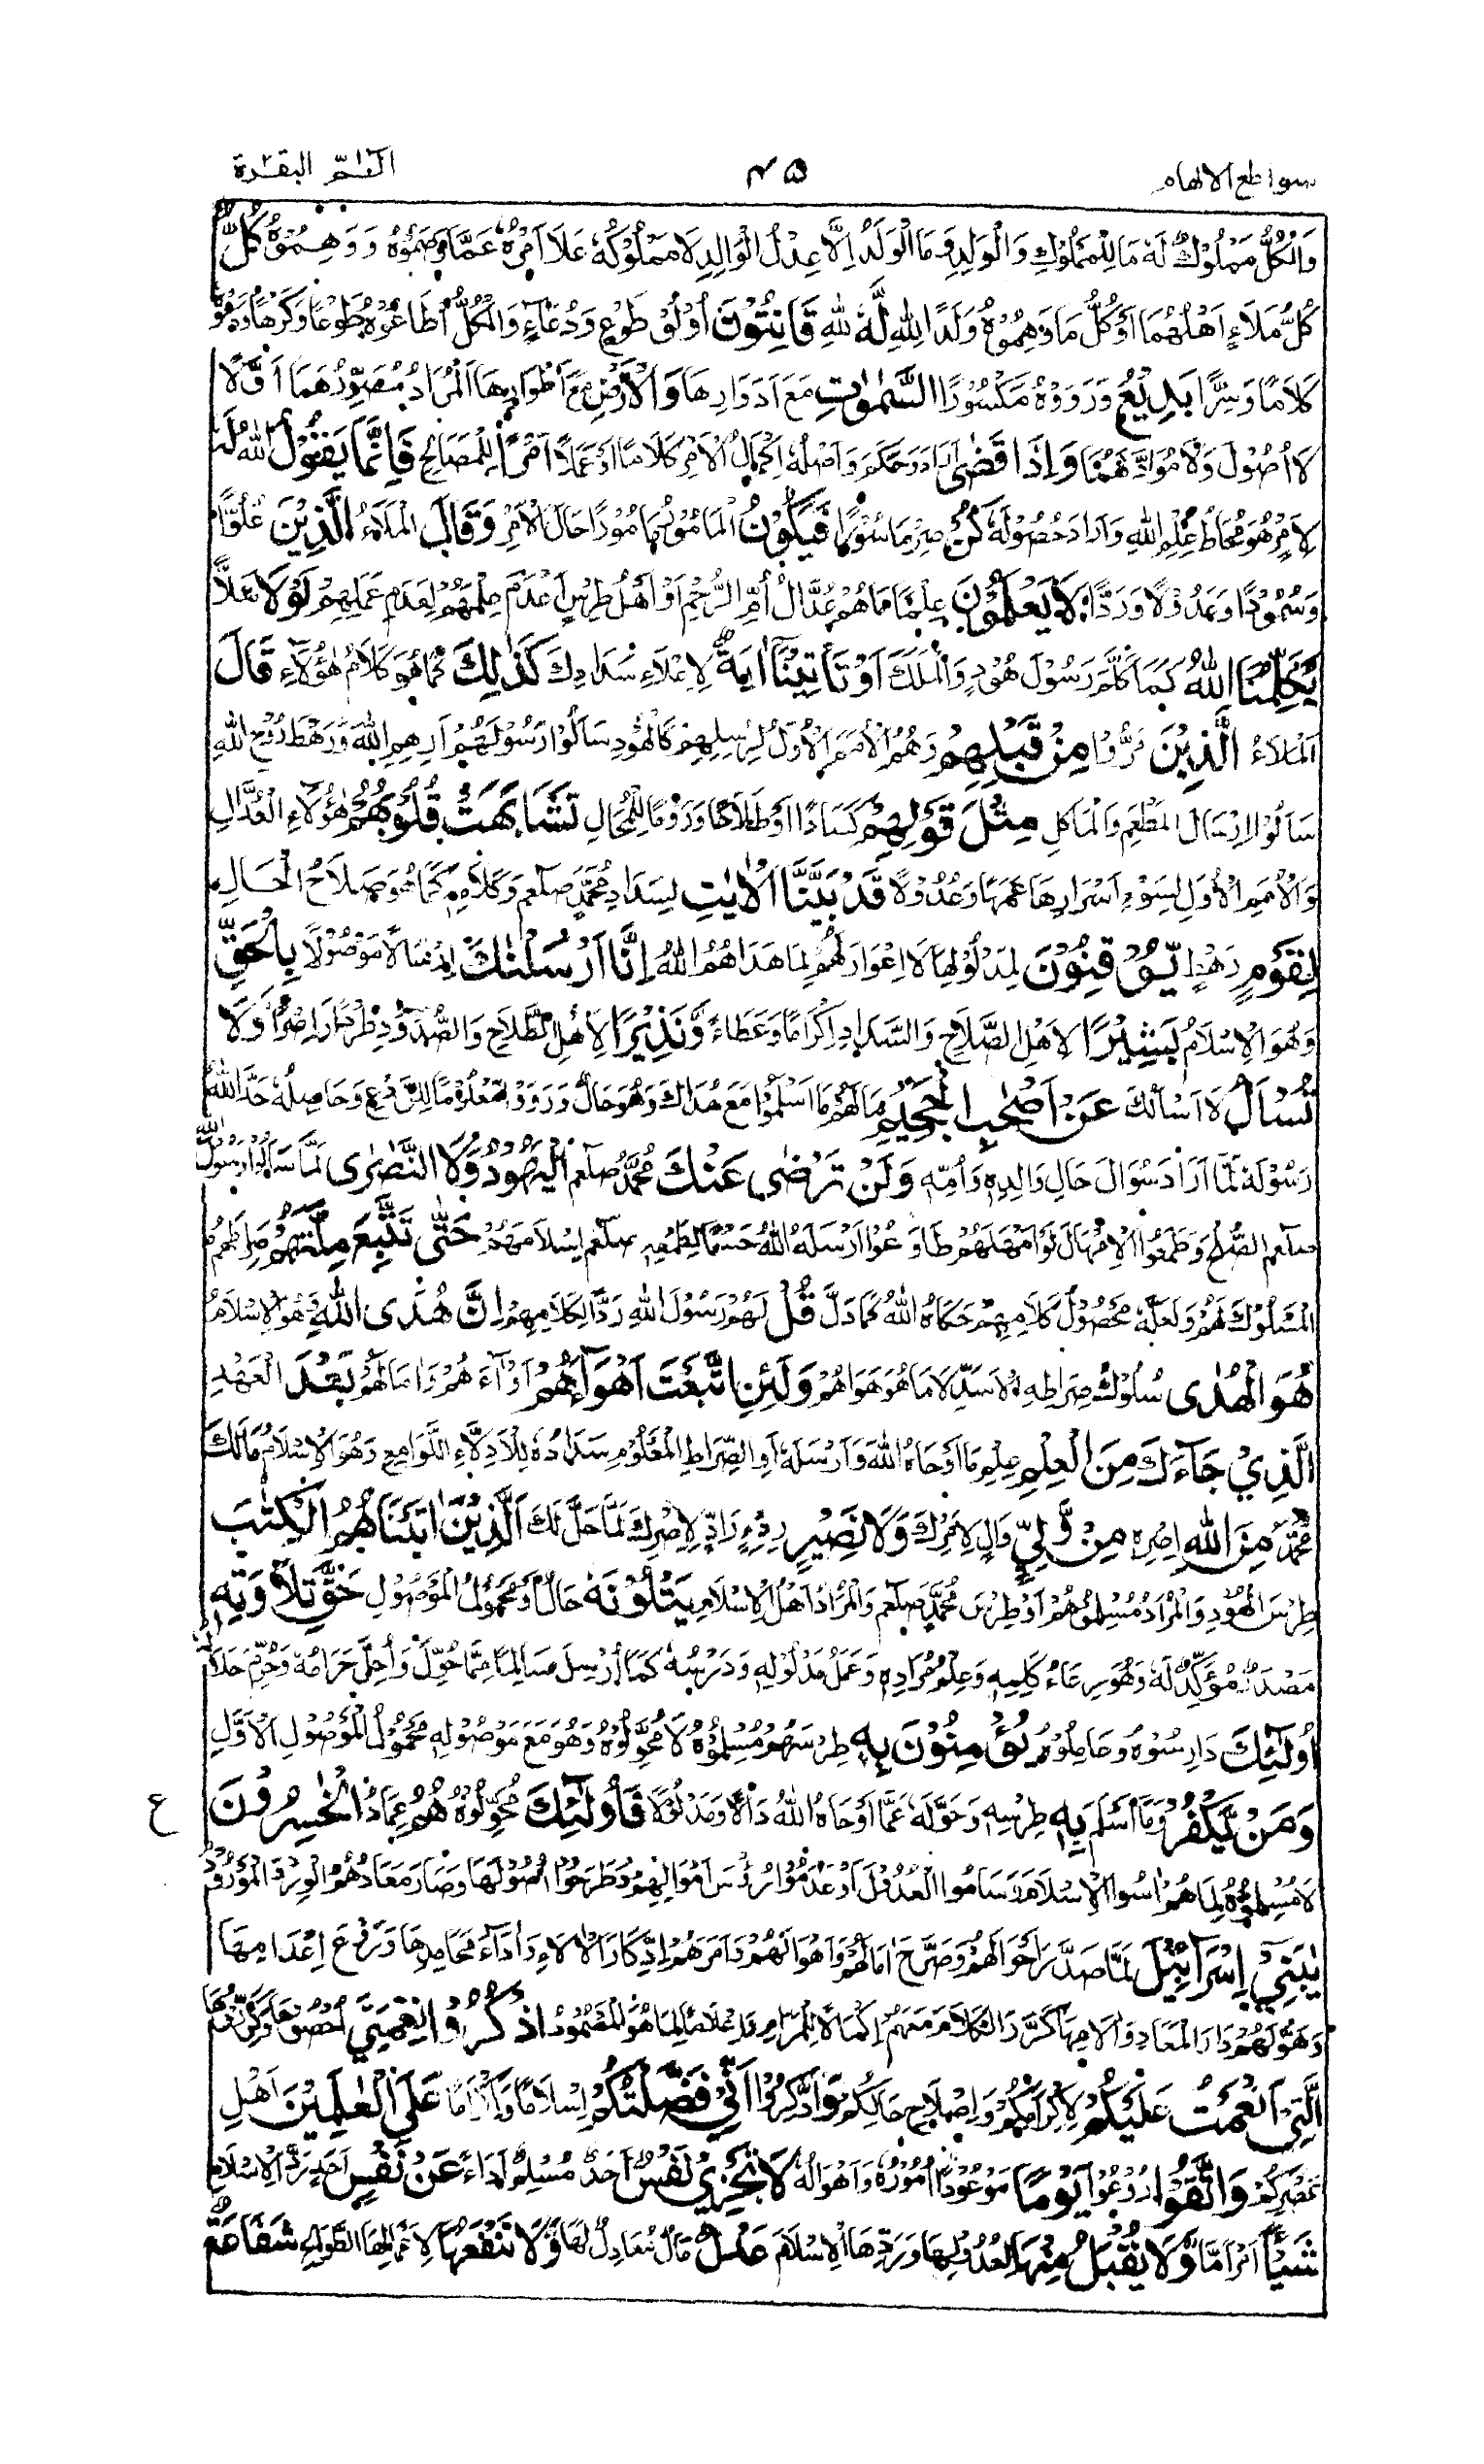 سواطع الالهام ۴۵ الٓمّٓ البقرة
وَالْكُلُّ مَمْلُوْكٌ لَهٗ مَا لِلْمَمْلُوْكِ وَالْوَلَدِ وَمَا الْوَلَدُ اِلَّا عِدْلُ الْوَالِدِ لَا مَمْلُوْكُهٗ عَلَا اَمْرُهٗ عَمَّا وَصَمُوْهُ وَوَهِمُوْهُ كُلٌّ
كُلُّ مَلَاءٍ اَهْلُهُمَا اَوْ كُلُّ مَا وَهِمُوْهُ وَلَدًا لِلّٰهِ لَّهٗ لِلّٰهِ قَانِتُوْنَ اُولُوْ طَوْعٍ وَدُعَاءٍ وَالْكُلُّ اَطَاعُوْهُ طَوْعًا وَكَرْهًا
كَلَامًا وَسِرًّا بَدِيْعُ وَرَوَوْهُ مَكْسُوْرًا السَّمٰوٰتِ مَعَ اَدْوَارِهَا وَالْاَرْضِ مَعَ اَطْوَارِهَا الْمُرَادُ مُصَوِّرُهُمَا اَوَّلًا
لَا اُصُوْلَ وَلَا مَوَادَّ لَهُمَا وَاِذَا قَضٰى اَرَادَ وَحَكَمَ وَاَصْلُهٗ اِكْمَالُ الْاَمْرِ كَلَامًا اَوْ عَمَلًا اَمْرًا لِلْمَصَالِحِ فَاِنَّمَا يَقُوْلُ اللّٰهُ لَهٗ
لِاَمْرٍ هُوَ مُحَاطُ عِلْمِ اللّٰهِ وَاَرَادَ حُصُوْلَهٗ كُنْ صِرْ مَاسُوْرًا فَيَكُوْنُ الْمَامُوْرُ كَمَا مُوْرًا حَالَ الْاَمْرِ وَقَالَ الْمَلَاءُ الَّذِيْنَ عُلُوًّا
وَسُمُوْدًا وَعُدُوْلًا وَرَدًّا لَا يَعْلَمُوْنَ عِلْمًا مَا هُمْ عُدَّالُ اُمِّ الرُّحْمِ اَوْ اَهْلُ طِرْسٍ اَعْدَمَ عِلْمَهُمْ لِعَدَمِ عَمَلِهِمْ لَوْلَا هَلَّا
يُكَلِّمُنَا اللّٰهُ كَمَا كَلَّمَ رَسُوْلَ هُوْدٍ وَالْمَلَكَ اَوْ تَاْتِيْنَآ اٰيَةٌ لِاِعْلَاءِ سَدَادِكَ كَذٰلِكَ كَمَا هُوَ كَلَامُ هٰؤُلَاءِ قَالَ
اَلْمَلَاءُ الَّذِيْنَ مَرُّوْا مِنْ قَبْلِهِمْ وَهُمُ الْاُمَمُ الْاُوَلُ لِرُسُلِهِمْ كَالْهُوْدِ سَاَلُوْا رَسُوْلَهُمْ اَرِهِمِ اللّٰهَ وَرَهْطِ رُوْحِ اللّٰهِ
سَاَلُوْا اِرْسَالَ الْمَطْعَمِ وَالْمَاْكَلِ مِثْلَ قَوْلِهِمْ كَسَادًا اَوْ طَلَاحًا وَرَوْمًا لِلْمُحَالِ تَشَابَهَتْ قُلُوْبُهُمْ هٰؤُلَاءِ الْعُدَّالِ
وَالْاُمَمِ الْاُوَلِ لِسُوْءِ اَسْرَارِهَا عَمَهًا وَعُدُوْلًا قَدْ بَيَّنَّا الْاٰيٰتِ لِسَدَادِ مُحَمَّدٍ صَلْعَم وَكَلَامِهٖ كَمَا هُوَ صَلَاحُ الْحَالِ
لِقَوْمٍ رَهْطٍ يُّوْقِنُوْنَ لِمَدْلُوْلِهَا لَا اِعْوَارَ لَهُمْ لِمَا هَدَاهُمُ اللّٰهُ اِنَّآ اَرْسَلْنٰكَ اِرْسَالًا مَوْصُوْلًا بِالْحَقِّ
وَهُوَ الْاِسْلَامُ بَشِيْرًا لِاَهْلِ الصَّلَاحِ وَالسَّدَادِ اِكْرَامًا وَعَطَاءً وَّنَذِيْرًا لِاَهْلِ الطَّلَاحِ وَالصُّدُوْدِ طَرْدًا وَاِصْرًا وَلَا
تُسْاَلُ لَا اَسْاَلُكَ عَنْ اَصْحٰبِ الْجَحِيْمِ مَا لَهُمْ مَا اَسْلَمُوْا مَعَ هُدَاكَ وَهُوَ حَالٌ وَرَوَوْهُ مَعْلُوْمًا لِلرَّدْعِ وَحَاصِلُهٗ حَدَّ اللّٰهُ
رَسُوْلَهٗ لَمَّا اَرَادَ سُوَالَ حَالِ وَالِدِهٖ وَاُمِّهٖ وَلَنْ تَرْضٰى عَنْكَ مُحَمَّدُ صَلْعَم الْيَهُوْدُ وَلَا النَّصٰرٰى لَمَّا سَاَلُوْا رَسُوْلَ اللّٰهِ
صَلْعَم الصُّلْحَ وَطَمِعُوا الْاِمْهَالَ لَوْ اَمْهَلَهُمْ طَاوَعُوْا اَرْسَلَهُ اللّٰهُ حَسْمًا لِطَمْعِهٖ صَلْعَم اِسْلَامَهُمْ حَتّٰى تَتَّبِعَ مِلَّتَهُمْ صِرَاطَهُمْ
الْمَسْلُوْكَ لَهُمْ وَلَعَلَّهٗ مَحْصُوْلُ كَلَامِهِمْ حَكَاهُ اللّٰهُ كَمَا دَلَّ قُلْ لَهُمْ رَسُوْلَ اللّٰهِ رَدًّا لِكَلَامِهِمْ اِنَّ هُدَى اللّٰهِ وَهُوَ الْاِسْلَامُ
هُوَ الْهُدٰى سُلُوْكُ صِرَاطِهِ الْاَسَدِّ لَا مَا هُوَ هَوَاهُمْ وَلَئِنِ اتَّبَعْتَ اَهْوَآءَهُمْ اٰرَآءَهُمْ وَاٰمَالَهُمْ بَعْدَ الْعَهْدِ
الَّذِيْ جَآءَكَ مِنَ الْعِلْمِ عِلْمِ مَا اَوْحَاهُ اللّٰهُ وَاَرْسَلَهٗ اَوِ الصِّرَاطِ الْمَعْلُوْمِ سَدَادُهٗ لِلْاَدِلَّاءِ اللَّوَامِعِ وَهُوَ الْاِسْلَامُ مَا لَكَ
مُحَمَّدُ مِنَ اللّٰهِ اِصْرِهٖ مِنْ وَّلِيٍّ وَالٍ لِاَمْرِكَ وَّلَا نَصِيْرٍ رِدْءٍ رَادٍّ لِاِصْرِكَ لَمَّا حَلَّ لَكَ اَلَّذِيْنَ اٰتَيْنٰهُمُ الْكِتٰبَ
طِرْسَ الْهُوْدِ وَالْمُرَادُ مُسْلِمُوْهُمْ اَوْ طِرْسَ مُحَمَّدٍ صَلْعَم وَالْمُرَادُ اَهْلُ الْاِسْلَامِ يَتْلُوْنَهٗ حَالٌ اَوْ مَحْمُوْلُ الْمَوْصُوْلِ حَقَّ تِلَاوَتِهٖ
مَصْدَرٌ مُؤَكِّدٌ لَهٗ وَهُوَ رِعَاءُ كَلِمِهٖ وَعِلْمُ مُرَادِهٖ وَعَمَلُ مَدْلُوْلِهٖ وَدَرْسُهٗ كَمَا اُرْسِلَ سَالِمًا مِمَّا حُوِّلَ وَاُحِلَّ حَرَامُهٗ وَحُرِّمَ حَلَالُهٗ
اُولٰٓئِكَ دَارِسُوْهُ وَحَامِلُوْهُ يُؤْمِنُوْنَ بِهٖ طِرْسُهُمْ مُسْلِمُوْهُ لَا مُحَوِّلُوْهُ وَهُوَ مَعَ مَوْصُوْلِهٖ مَحْمُوْلُ الْمَوْصُوْلِ الْاَوَّلِ
وَمَنْ يَّكْفُرْ وَمَا اَسْلَمَ بِهٖ طِرْسِهٖ وَحَوَّلَهٗ عَمَّا اَوْحَاهُ اللّٰهُ دَالًّا وَمَدْلُوْلًا فَاُولٰٓئِكَ مُحَوِّلُوْهُ هُمْ عِمَادُ الْخٰسِرُوْنَ ع
لَا مُسْلِمُوْهُ لِمَا هُمْ اسُوا الْاِسْلَامَ وَسَامُوا الْعُدُوْلَ وَعَدِمُوْا رُءُوْسَ اَمْوَالِهِمْ وَطَرَحُوْا اُصُوْلَهَا وَصَارَ مَعَادُهُمُ الْوِرْدَ الْمَوْرُوْدَ
يٰبَنِيْٓ اِسْرَآئِيْلَ لَمَّا صَدَّرَ اَحْوَالَهُمْ وَصَرَّحَ اٰمَالَهُمْ وَاَهْوَالَهُمْ وَاَمَرَهُمْ اِدِّكَارَ الْاٰلَاءِ وَاَدَاءَ مَحَامِدِهَا وَرَدْعَ اِعْدَامِهَا
وَهَوَّلَهُمْ دَارَ الْمَعَادِ وَاٰلَامِهَا كَرَّرَ الْكَلَامَ مَعَهُمْ اِكْمَالًا لِلْمَرَامِ وَاِعْلَامًا لِمَا هُوَ الْمَقْصُوْدُ اذْكُرُوْا نِعْمَتِيَ
الَّتِيْٓ اَنْعَمْتُ عَلَيْكُمْ لِاِكْرَامِكُمْ وَاِصْلَاحِ حَالِكُمْ وَادَّكِرُوْا اَنِّيْ فَضَّلْتُكُمْ اِسْلَامًا وَاِكْرَامًا عَلَى الْعٰلَمِيْنَ اَهْلِ
عَصْرِكُمْ وَاتَّقُوْا رُوْعُوْا يَوْمًا مَوْعُوْدًا اُمُوْرُهٗ وَاَهْوَالُهٗ لَا تَجْزِيْ نَفْسٌ اَحَدٌ مُسْلِمٌ اَدَاءً عَنْ نَفْسٍ اَحَدٍ رَدَّ الْاِسْلَامَ
شَيْـًٔا اَمْرًا مَّا وَّلَا يُقْبَلُ مِنْهَا لِعُدُوْلِهَا وَرَدِّهَا الْاِسْلَامَ عَدْلٌ مَالٌ مُعَادِلٌ لَهَا وَّلَا تَنْفَعُهَا لِاَعْمَالِهَا الطَّوَالِحِ شَفَاعَةٌ